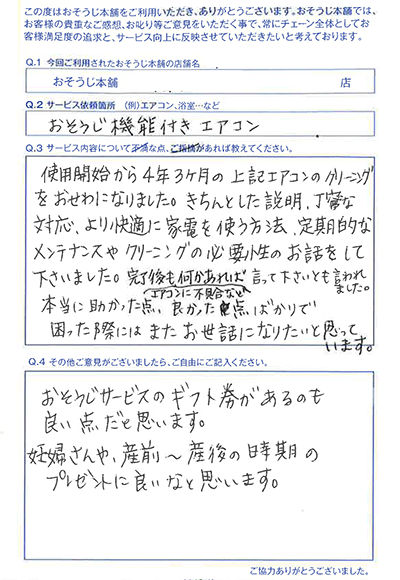 この度はおそうじ本舗をご利用いただき、ありがとうございます。おそうじ本舗では、
お客様の貴重なご感想、お叱り等ご意見をいただく事で、常にチェーン全体としてお
客様満足度の追求と、サービス向上に反映させていただきたいと考えております。
Q.1 今回ご利用されたおそうじ本舗の店舗名
おそうじ本舗 店
Q.2 サービス依頼箇所 (例)エアコン、浴室…など
おそうじ機能付きエアコン
Q.3 サービス内容について不満な点、ご指摘があれば教えてください。
使用開始から4年3ヶ月の上記エアコンのクリーニング
をおせわになりました。きちんとした説明、丁寧な
対応、より快適に家電を使う方法、定期的な
メンテナンスやクリーニングの必要性のお話をして
下さいました。完了後も何かあれば言って下さいとも言われ
ました。
エアコンに不具合など
本当に助かった点、良かった点ばかりで
困った際にはまたお世話になりたいと思って
います。
Q.4 その他ご意見がございましたら、ご自由にご記入ください。
おそうじサービスのギフト券があるのも
良い点だと思います。
妊婦さんや、産前～産後の時期の
プレゼントに良いなと思います。
ご協力ありがとうございました。